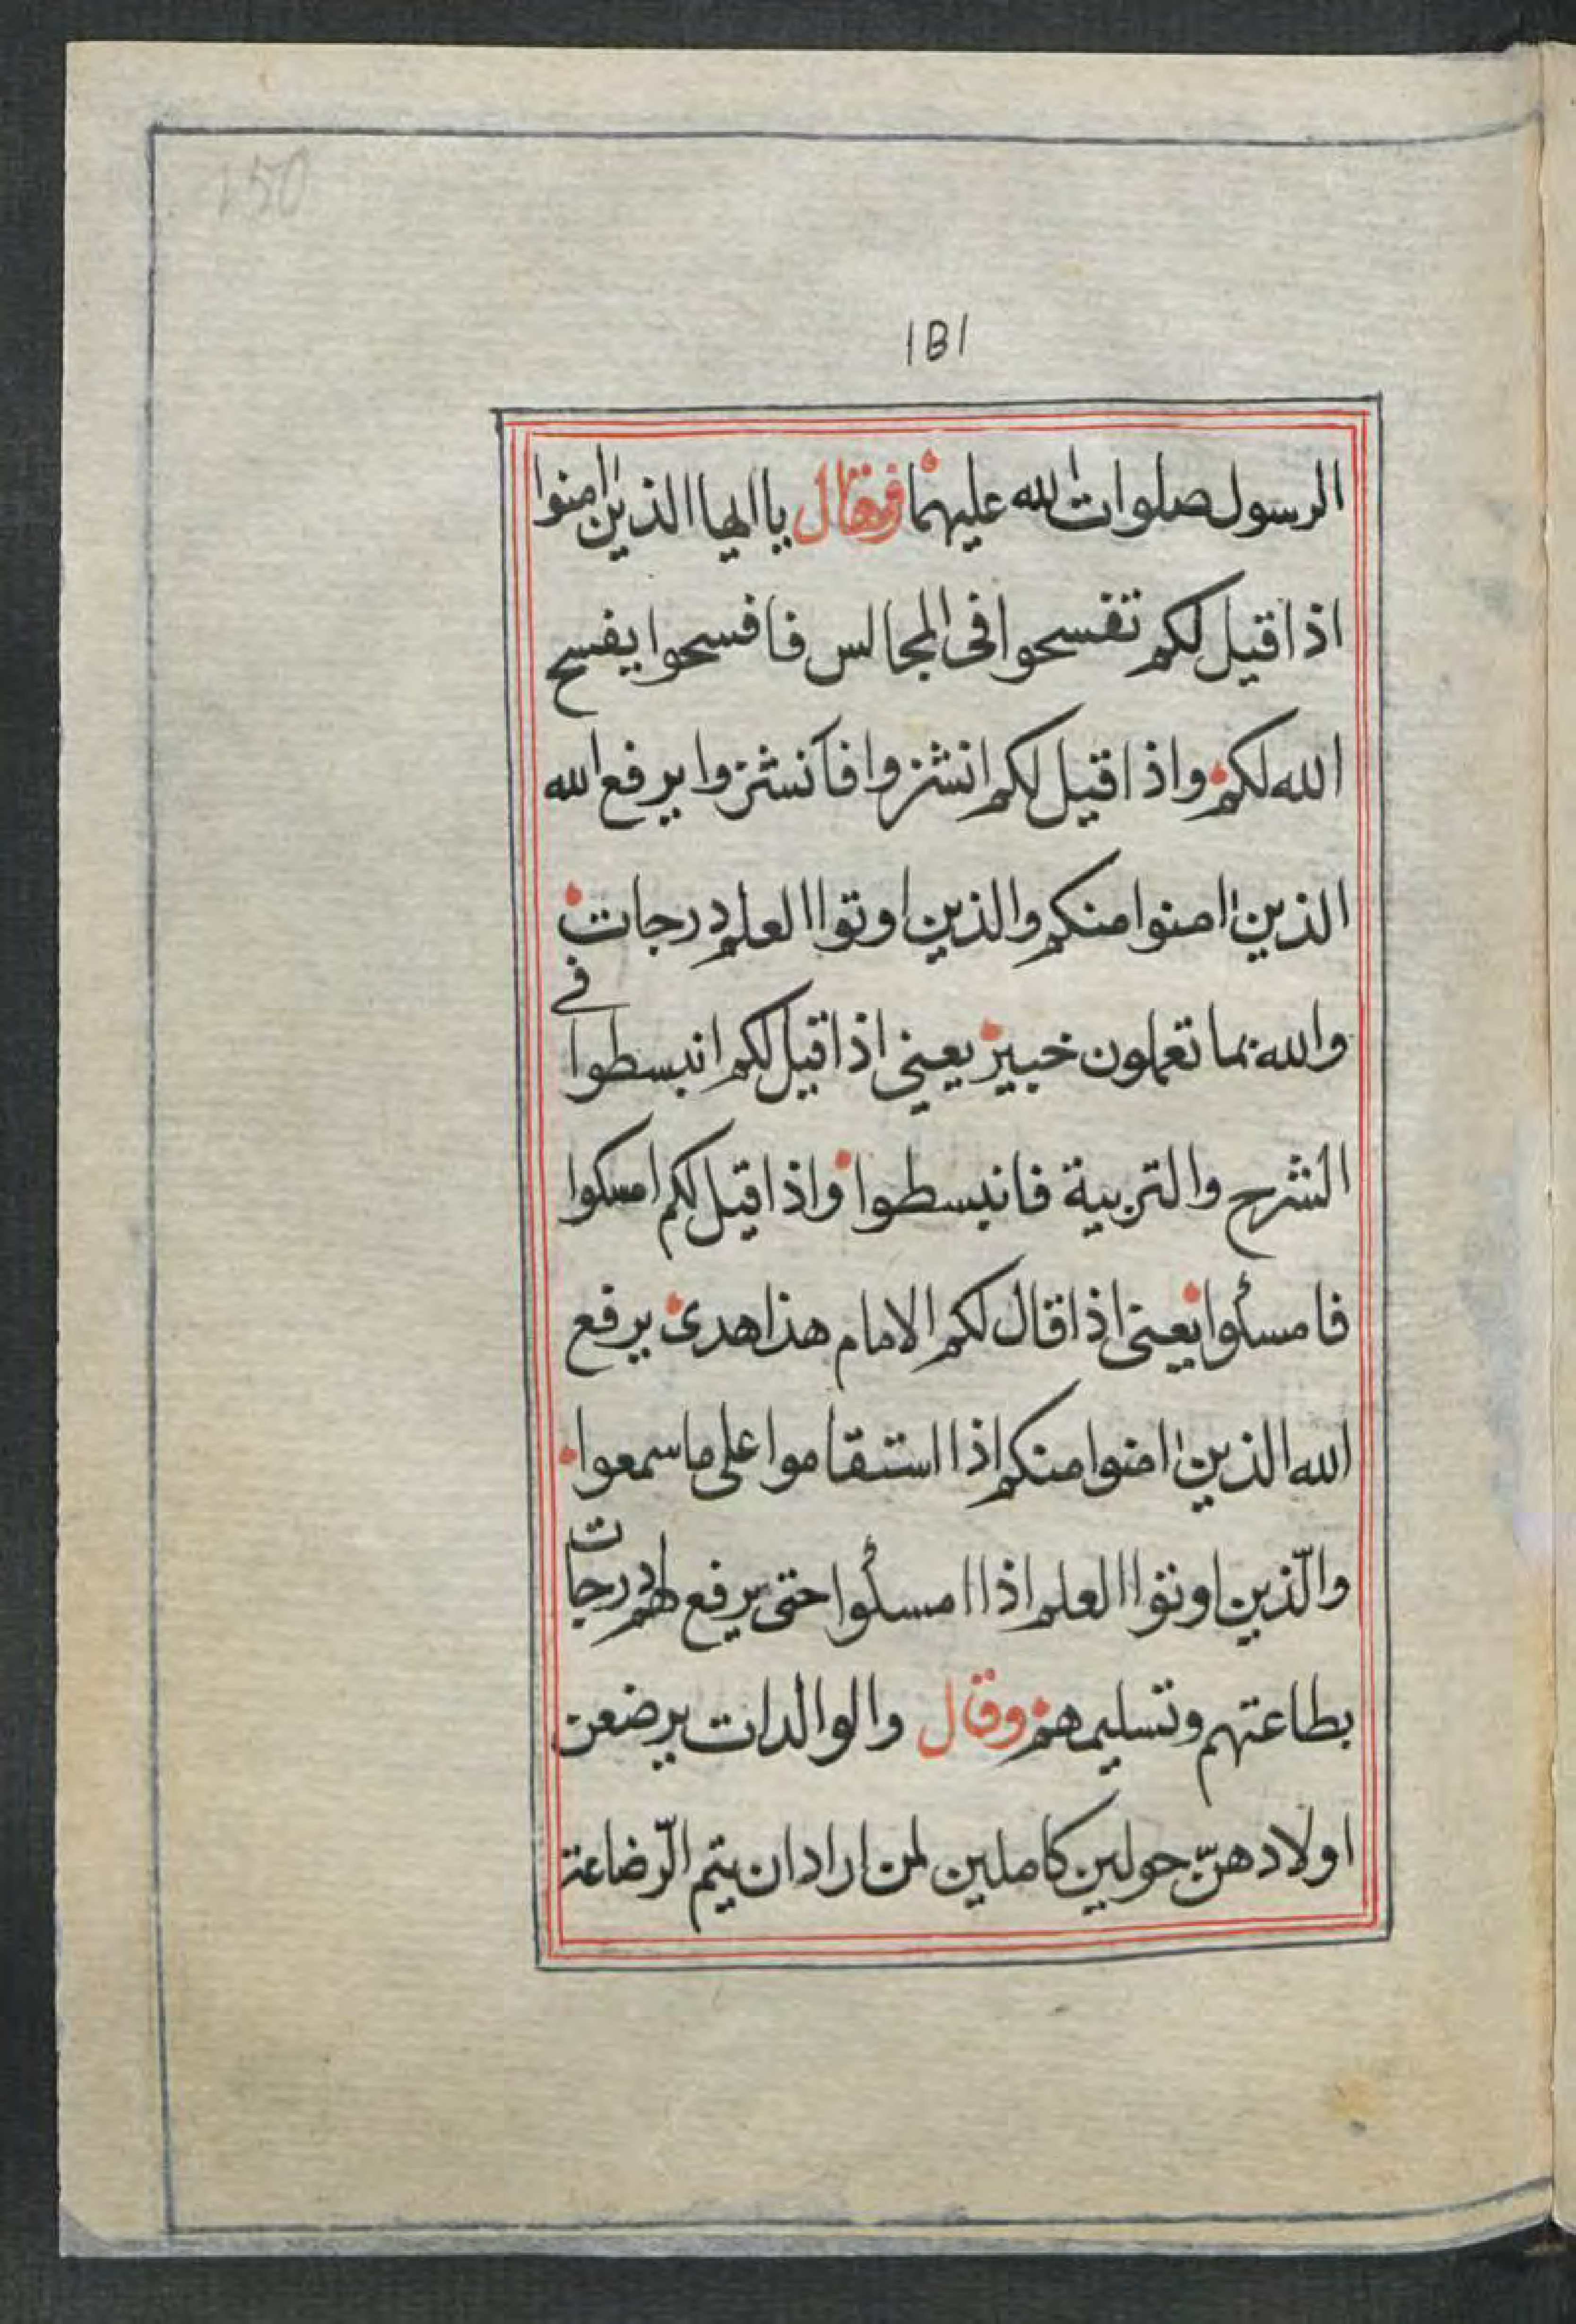 150
١٥١
الرسول صلوات الله عليهما وقال ياايها الذين امنوا
اذا قيل لكم تفسحوا فى المجالس فافسحوا يفسح
الله لكم واذا قيل لكم انشزوا فانشزوا يرفع الله
الذين امنوا منكم والذين اوتوا العلم درجات
والله بما تعملون خبير يعني اذا قيل لكم انبسطوا فى
الشرح والتربية فانبسطوا واذا قيل لكم امسكوا
فامسكوا يعنى اذا قال لكم الامام هذا هدى يرفع
الله الذين امنوا منكم اذا استقاموا على ما سمعوا
والّذين اوتوا العلم اذا امسكوا حتى يرفع لهم درجات
بطاعتهم وتسليمهم وقال والوالدات يرضعن
اولادهنّ حولين كاملين لمن اراد ان يتم الرّضاعة